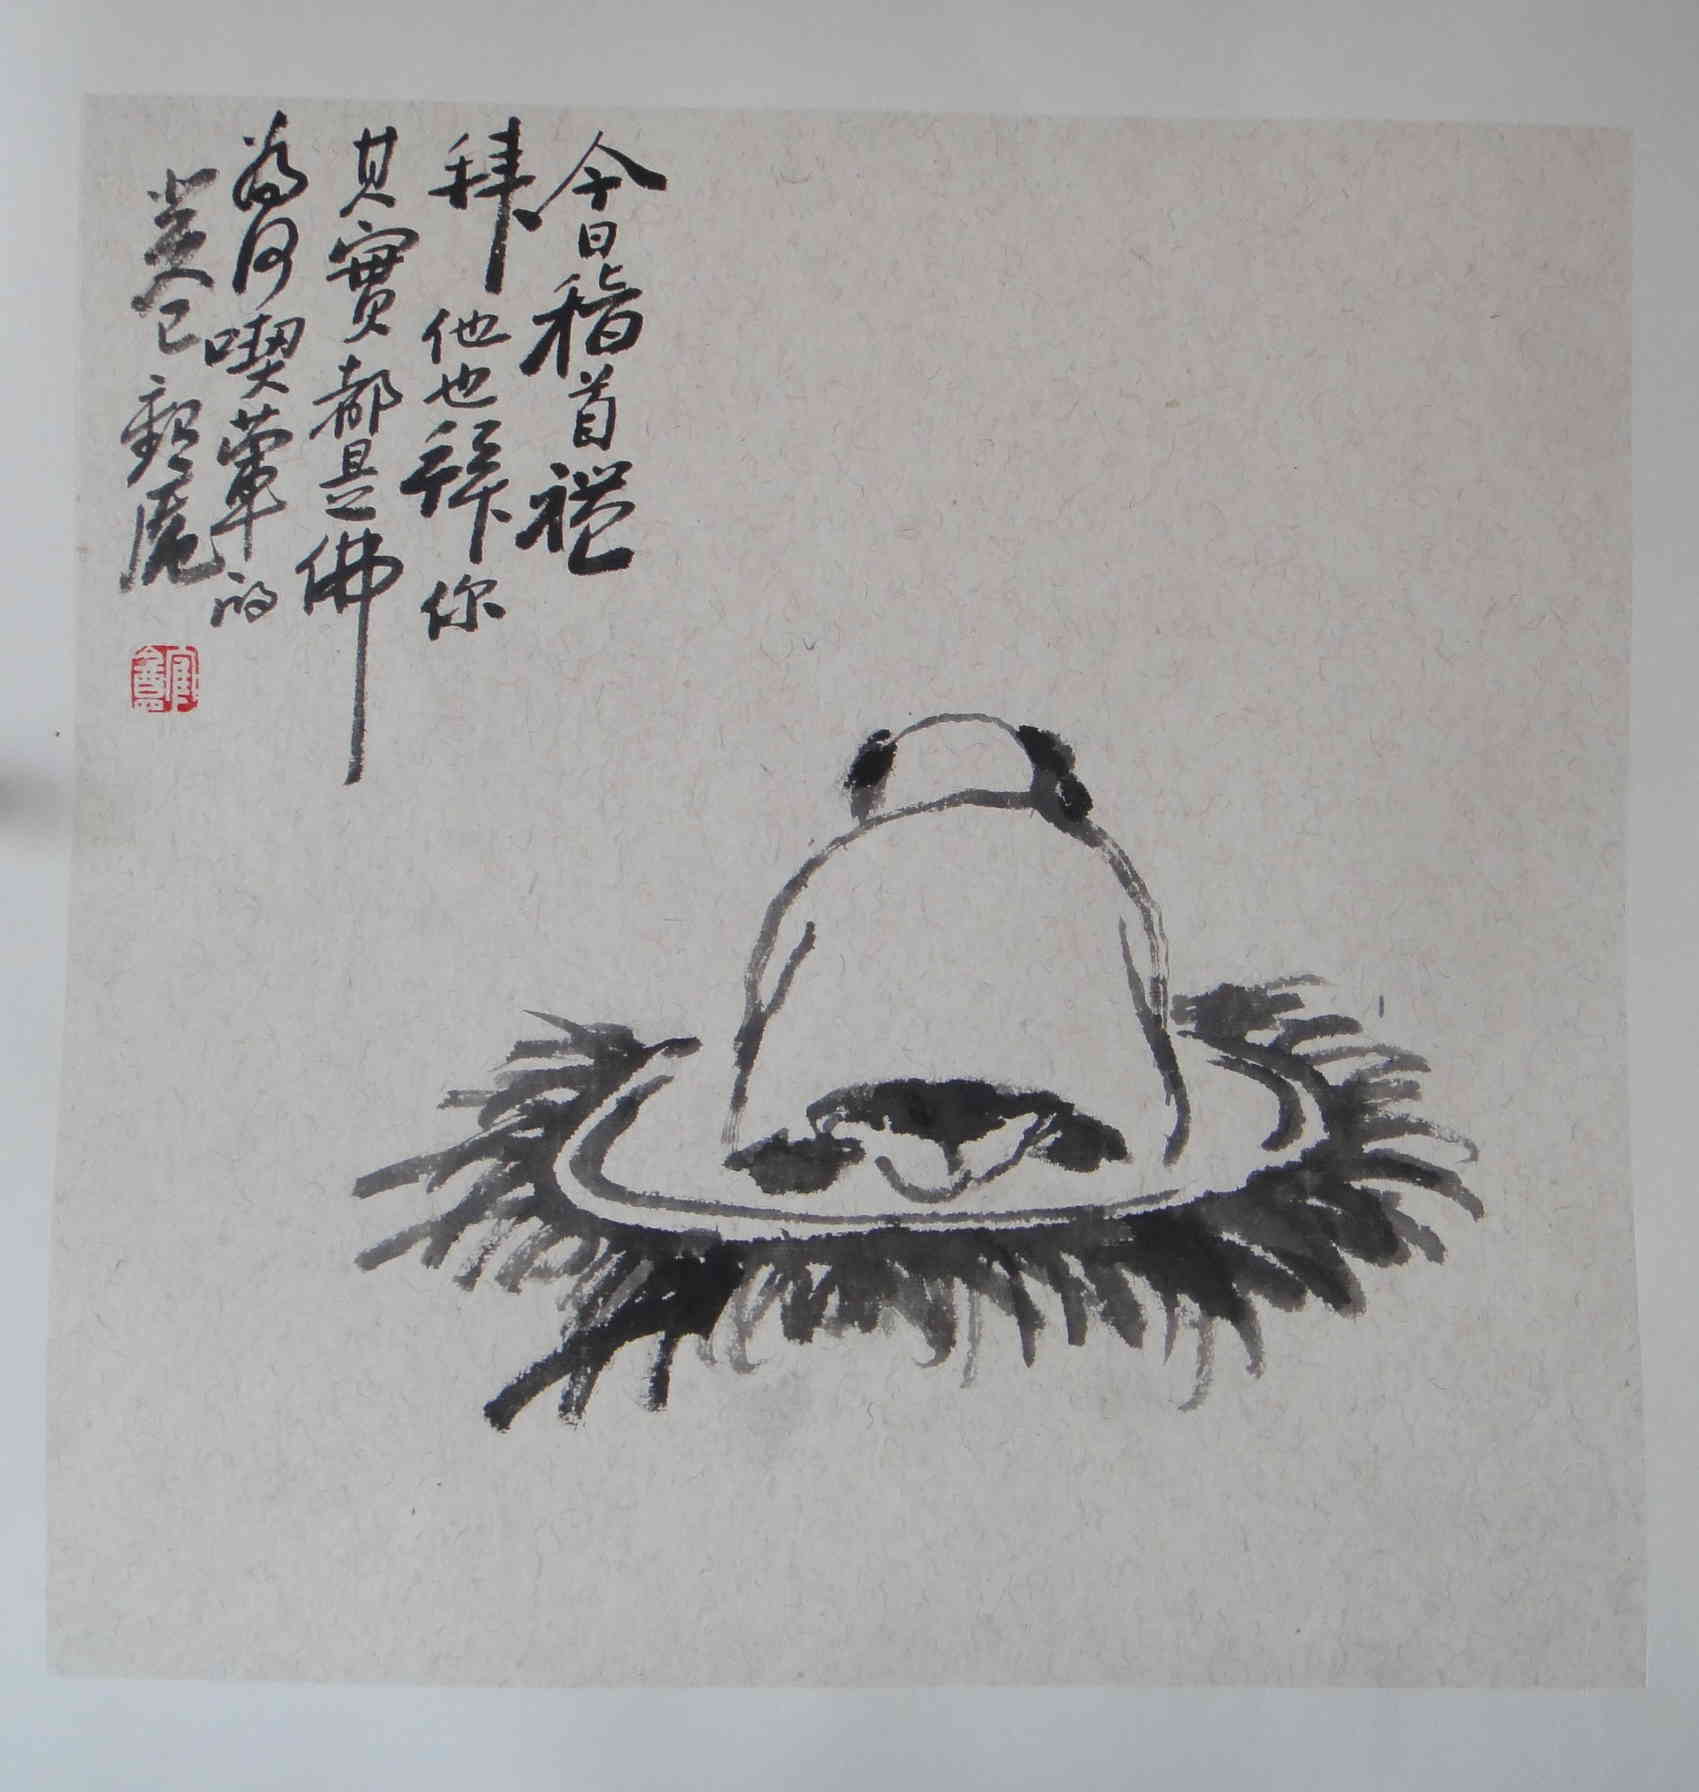 今日稽首禮
拜他也拜你
其實都是佛
為何喫葷的
癸巳庵